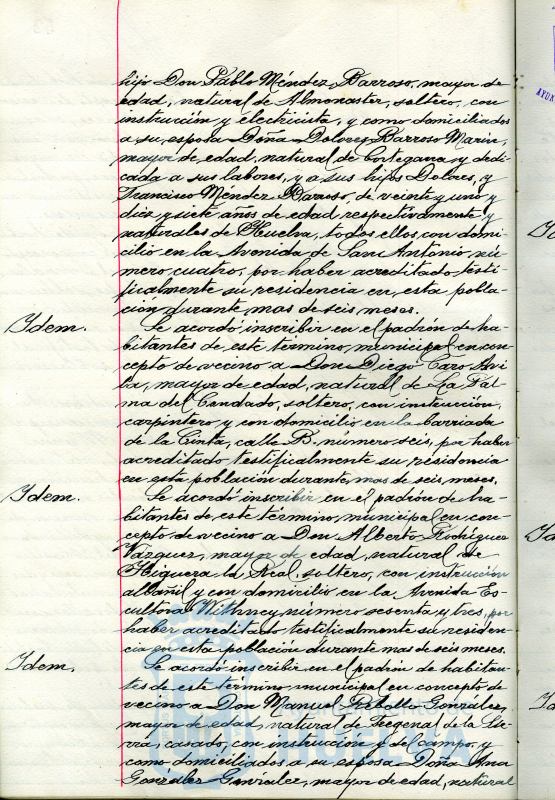 hijo Don Pablo Méndez Barroso, mayor de
edad, natural de Almonaster, soltero, con
instrucción y electricista, y como domiciliados
a su esposa Doña Dolores Barroso Marin,
mayor de edad, natural de Cortegana y dedi-
cada a sus labores, y a sus hijos Dolores, y
Francisco Méndez Barroso, de veinte y uno y
diez y siete años de edad respectivamente y
naturales de Huelva, todos ellos con domi-
cilio en la Avenida de San Antonio nú-
mero cuatro, por haber acreditado testi-
ficalmente su residencia en esta pobla-
ción durante mas de seis meses.
Idem. Se acordó inscribir en el padrón de ha-
bitantes de este término municipal en con-
cepto de vecino a Don Diego Caro Avi
la, mayor de edad, natural de La Pal-
ma del Condado, soltero, con instrucción,
carpintero y con domicilio en la barriada
de la Cinta, calle R. número seis, por haber
acreditado testificalmente su residencia
en esta población durante mas de seis meses.
Idem. Se acordó inscribir en el padrón de ha-
bitantes de este término municipal en con-
cepto de vecino a Don Alberto Rodríguez
Vazquez, mayor de edad, natural de
Higuera la Real, soltero, con instrucción
albañil y con domicilio en la Avenida Es-
cultora Withney número sesenta y tres, por
haber acreditado testificalmente su residen-
cia en esta población durante mas de seis meses.
Idem. Se acordó inscribir en el padrón de habitan-
tes de este término municipal en concepto de
vecino a Don Manuel Rebollo Gonzalez,
mayor de edad, natural de Fregenal de la Sie-
rra, casado, con instrucción y del campo, y
como domiciliados a su esposa Doña Ana
Gonzalez Gonzalez, mayor de edad, natural
HUELVA